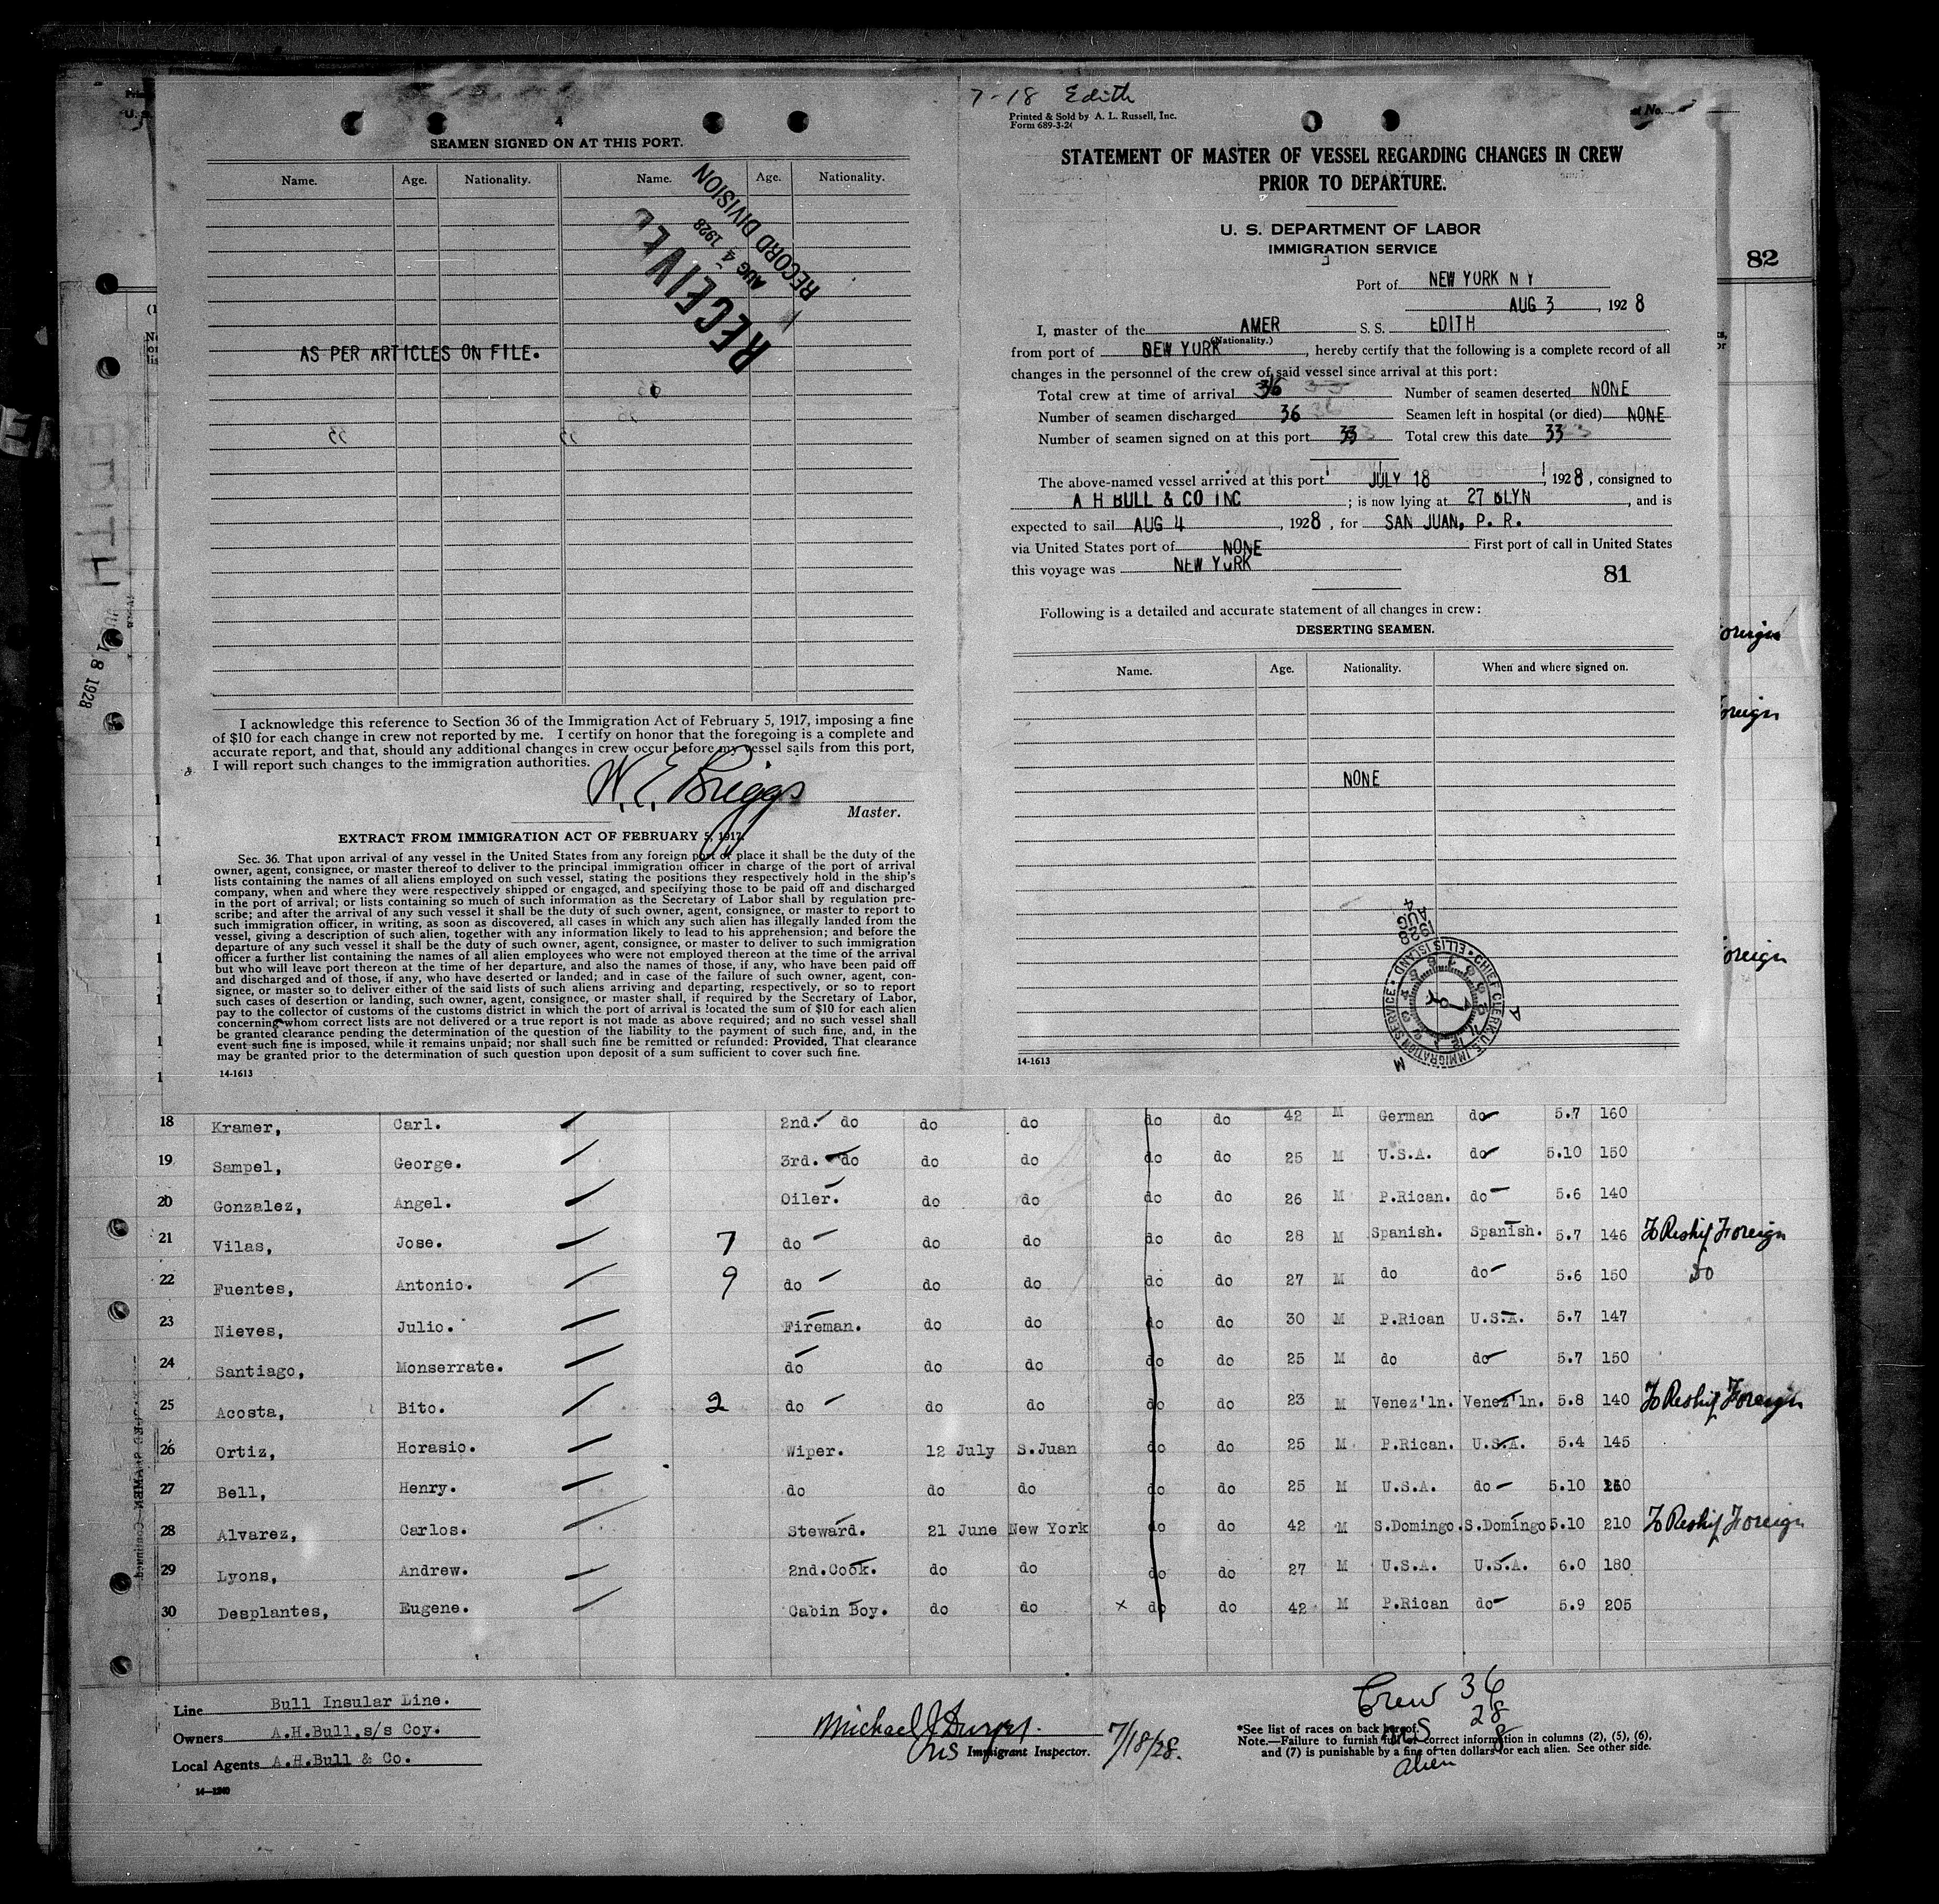 7-18 Edith
Printed & Sold by A. L. Russell, Inc.
Form 689-3-2
4
SEAMEN SIGNED ON AT THIS PORT.
Name. Age. Nationality. Name. Age. Nationality.
RECEIVED
AUG 4 1928
RECORD DIVISION
AS PER ARTICLES ON FILE.
I acknowledge this reference to Section 36 of the Immigration Act of February 5, 1917, imposing a fine
of $10 for each change in crew not reported by me. I certify on honor that the foregoing is a complete and
accurate report, and that, should any additional changes in crew occur before my vessel sails from this port,
I will report such changes to the immigration authorities.
W. E. Briggs
Master.
EXTRACT FROM IMMIGRATION ACT OF FEBRUARY 5, 1917.
Sec. 36. That upon arrival of any vessel in the United States from any foreign port or place it shall be the duty of the
owner, agent, consignee, or master thereof to deliver to the principal immigration officer in charge of the port of arrival
lists containing the names of all aliens employed on such vessel, stating the positions they respectively hold in the ship's
company, when and where they were respectively shipped or engaged, and specifying those to be paid off and discharged
in the port of arrival; or lists containing so much of such information as the Secretary of Labor shall by regulation pre-
scribe; and after the arrival of any such vessel it shall be the duty of such owner, agent, consignee, or master to report to
such immigration officer, in writing, as soon as discovered, all cases in which any such alien has illegally landed from the
vessel, giving a description of such alien, together with any information likely to lead to his apprehension; and before the
departure of any such vessel it shall be the duty of such owner, agent, consignee, or master to deliver to such immigration
officer a further list containing the names of all alien employees who were not employed thereon at the time of the arrival
but who will leave port thereon at the time of her departure, and also the names of those, if any, who have been paid off
and discharged and of those, if any, who have deserted or landed; and in case of the failure of such owner, agent, con-
signee, or master so to deliver either of the said lists of such aliens arriving and departing, respectively, or so to report
such cases of desertion or landing, such owner, agent, consignee, or master shall, if required by the Secretary of Labor,
pay to the collector of customs of the customs district in which the port of arrival is located the sum of $10 for each alien
concerning whom correct lists are not delivered or a true report is not made as above required; and no such vessel shall
be granted clearance pending the determination of the question of the liability to the payment of such fine, and, in the
event such fine is imposed, while it remains unpaid; nor shall such fine be remitted or refunded: Provided, That clearance
may be granted prior to the determination of such question upon deposit of a sum sufficient to cover such fine.
14-1613
STATEMENT OF MASTER OF VESSEL REGARDING CHANGES IN CREW
PRIOR TO DEPARTURE.
U. S. DEPARTMENT OF LABOR
IMMIGRATION SERVICE
Port of NEW YORK N Y
AUG 3, 1928
I, master of the AMER S. S. EDITH
(Nationality.)
from port of NEW YORK, hereby certify that the following is a complete record of all
changes in the personnel of the crew of said vessel since arrival at this port:
Total crew at time of arrival 36 Number of seamen deserted NONE
Number of seamen discharged 36 Seamen left in hospital (or died) NONE
Number of seamen signed on at this port 33 Total crew this date 33
The above-named vessel arrived at this port JULY 18, 1928, consigned to
A H BULL & CO INC; is now lying at 27 BLYN, and is
expected to sail AUG 4, 1928, for SAN JUAN, P. R.
via United States port of NONE First port of call in United States
this voyage was NEW YORK
81
Following is a detailed and accurate statement of all changes in crew:
DESERTING SEAMEN.
Name. Age. Nationality. When and where signed on.
NONE
CHIEF CLERK, U.S. IMMIGRATION SERVICE. ELLIS ISLAND
14-1613
82
EDITH
18 1928
oreign
oreign
oreign
18 Kramer, Carl. 2nd. do do do do do 42 M German do 5.7 160
19 Sampel, George. 3rd. do do do do do 25 M U.S.A. do 5.10 150
20 Gonzalez, Angel. Oiler. do do do do 26 M P.Rican. do 5.6 140
21 Vilas, Jose. 7 do do do do do 28 M Spanish. Spanish. 5.7 146 To Reship Foreign
22 Fuentes, Antonio. 9 do do do do do 27 M do do 5.6 150 Do
23 Nieves, Julio. Fireman. do do do do 30 M P.Rican U.S.A. 5.7 147
24 Santiago, Monserrate. do do do do do 25 M do do 5.7 150
25 Acosta, Bito. 2 do do do do do 23 M Venez'ln. Venez'ln. 5.8 140 To Reship Foreign
26 Ortiz, Horasio. Wiper. 12 July S.Juan do do 25 M P.Rican. U.S.A. 5.4 145
27 Bell, Henry. do do do do do 25 M U.S.A. do 5.10
28 Alvarez, Carlos. Steward. 21 June New York do do 42 M S.Domingo. S.Domingo 5.10 210 To Reship Foreign
29 Lyons, Andrew. 2nd.Cook. do do do do 27 M U.S.A. U.S.A. 6.0 180
30 Desplantes, Eugene. Cabin Boy. do do x do do 42 M P.Rican do 5.9 205
Line Bull Insular Line.
Owners A.H.Bull,s/s Coy.
Local Agents A.H.Bull & Co.
14-1240
Michael J
Immigrant Inspector.
7/18/28.
Crew 36
28
8
Alien
*See list of races on back hereof.
Note.—Failure to furnish full or correct information in columns (2), (5), (6),
and (7) is punishable by a fine of ten dollars for each alien. See other side.